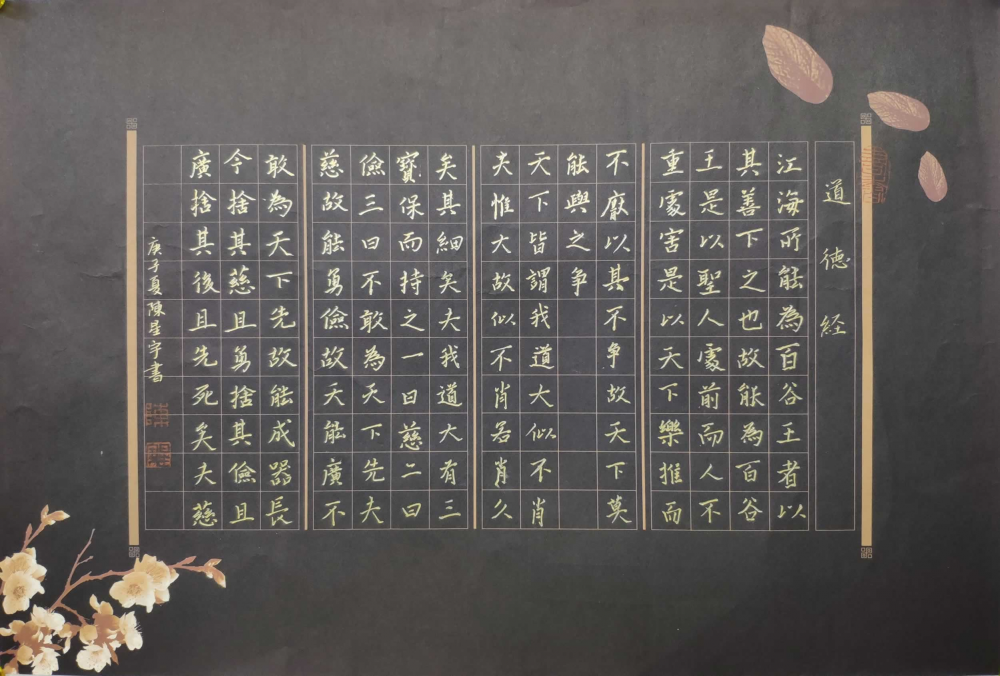 道德经
江海所能為百谷王者以
其善下之也故能為百谷
王是以聖人處前而人不
重處害是以天下樂推而
不厭以其不争故天下莫
能與之争
天下皆謂我道大似不肖
夫惟大故似不肖若肖久
矣其細矣夫我道大有三
寳保而持之一曰慈二曰
儉三曰不敢為天下先夫
慈故能勇儉故天能廣不
敢為天下先故能成器長
今捨其慈且勇捨其儉且
廣捨其後且先死矣夫慈
庚子夏陳星宇書